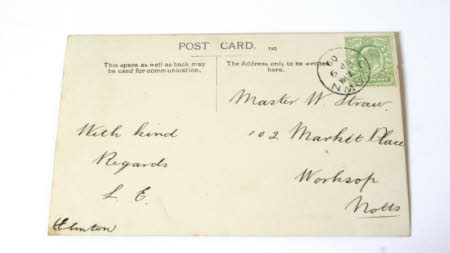 POST CARD.
This space as well as back may
be used for communication.
The Address only to be written
here.
With kind
Regards
L. E.
Clinton
Master W. Straw.
102 Market Place
Worksop
Notts